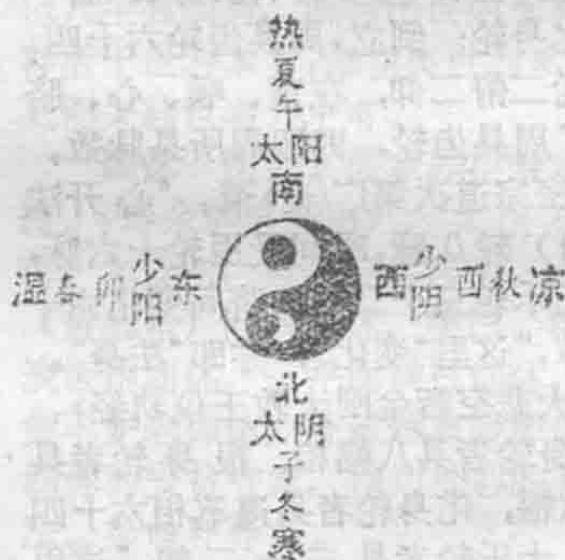 热
夏
午
太阳
南
湿春卯少阳东 西少阴酉秋凉
北
太阴
子
冬
寒